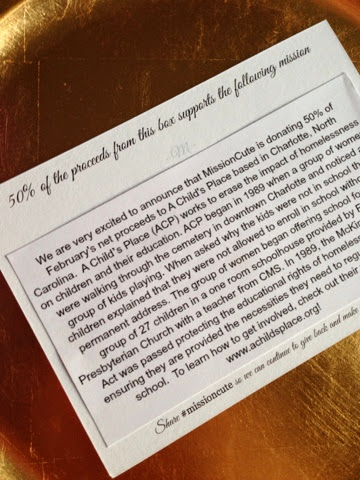 50% of the proceeds from this box supports the following mission
-M-
We are very excited to announce that MissionCute is donating 50% of
February's net proceeds to A Child's Place based in Charlotte, North
Carolina. A Child's Place (ACP) works to erase the impact of homelessness
on children and their education. ACP began in 1989 when a group of women
were walking through the cemetery in downtown Charlotte and noticed a
group of kids playing. When asked why the kids were not in school the
children explained that they were not allowed to enroll in school without
permanent address. The group of women began offering school for
group of 27 children in a one room schoolhouse provided by
Presbyterian Church with a teacher from CMS. In 1989, the
Act was passed protecting the educational rights of
ensuring they are provided the necessities they need to
school. To learn how to get involved, check out
www.achildsplace.org!
Share #missioncute so we can continue to give back and make